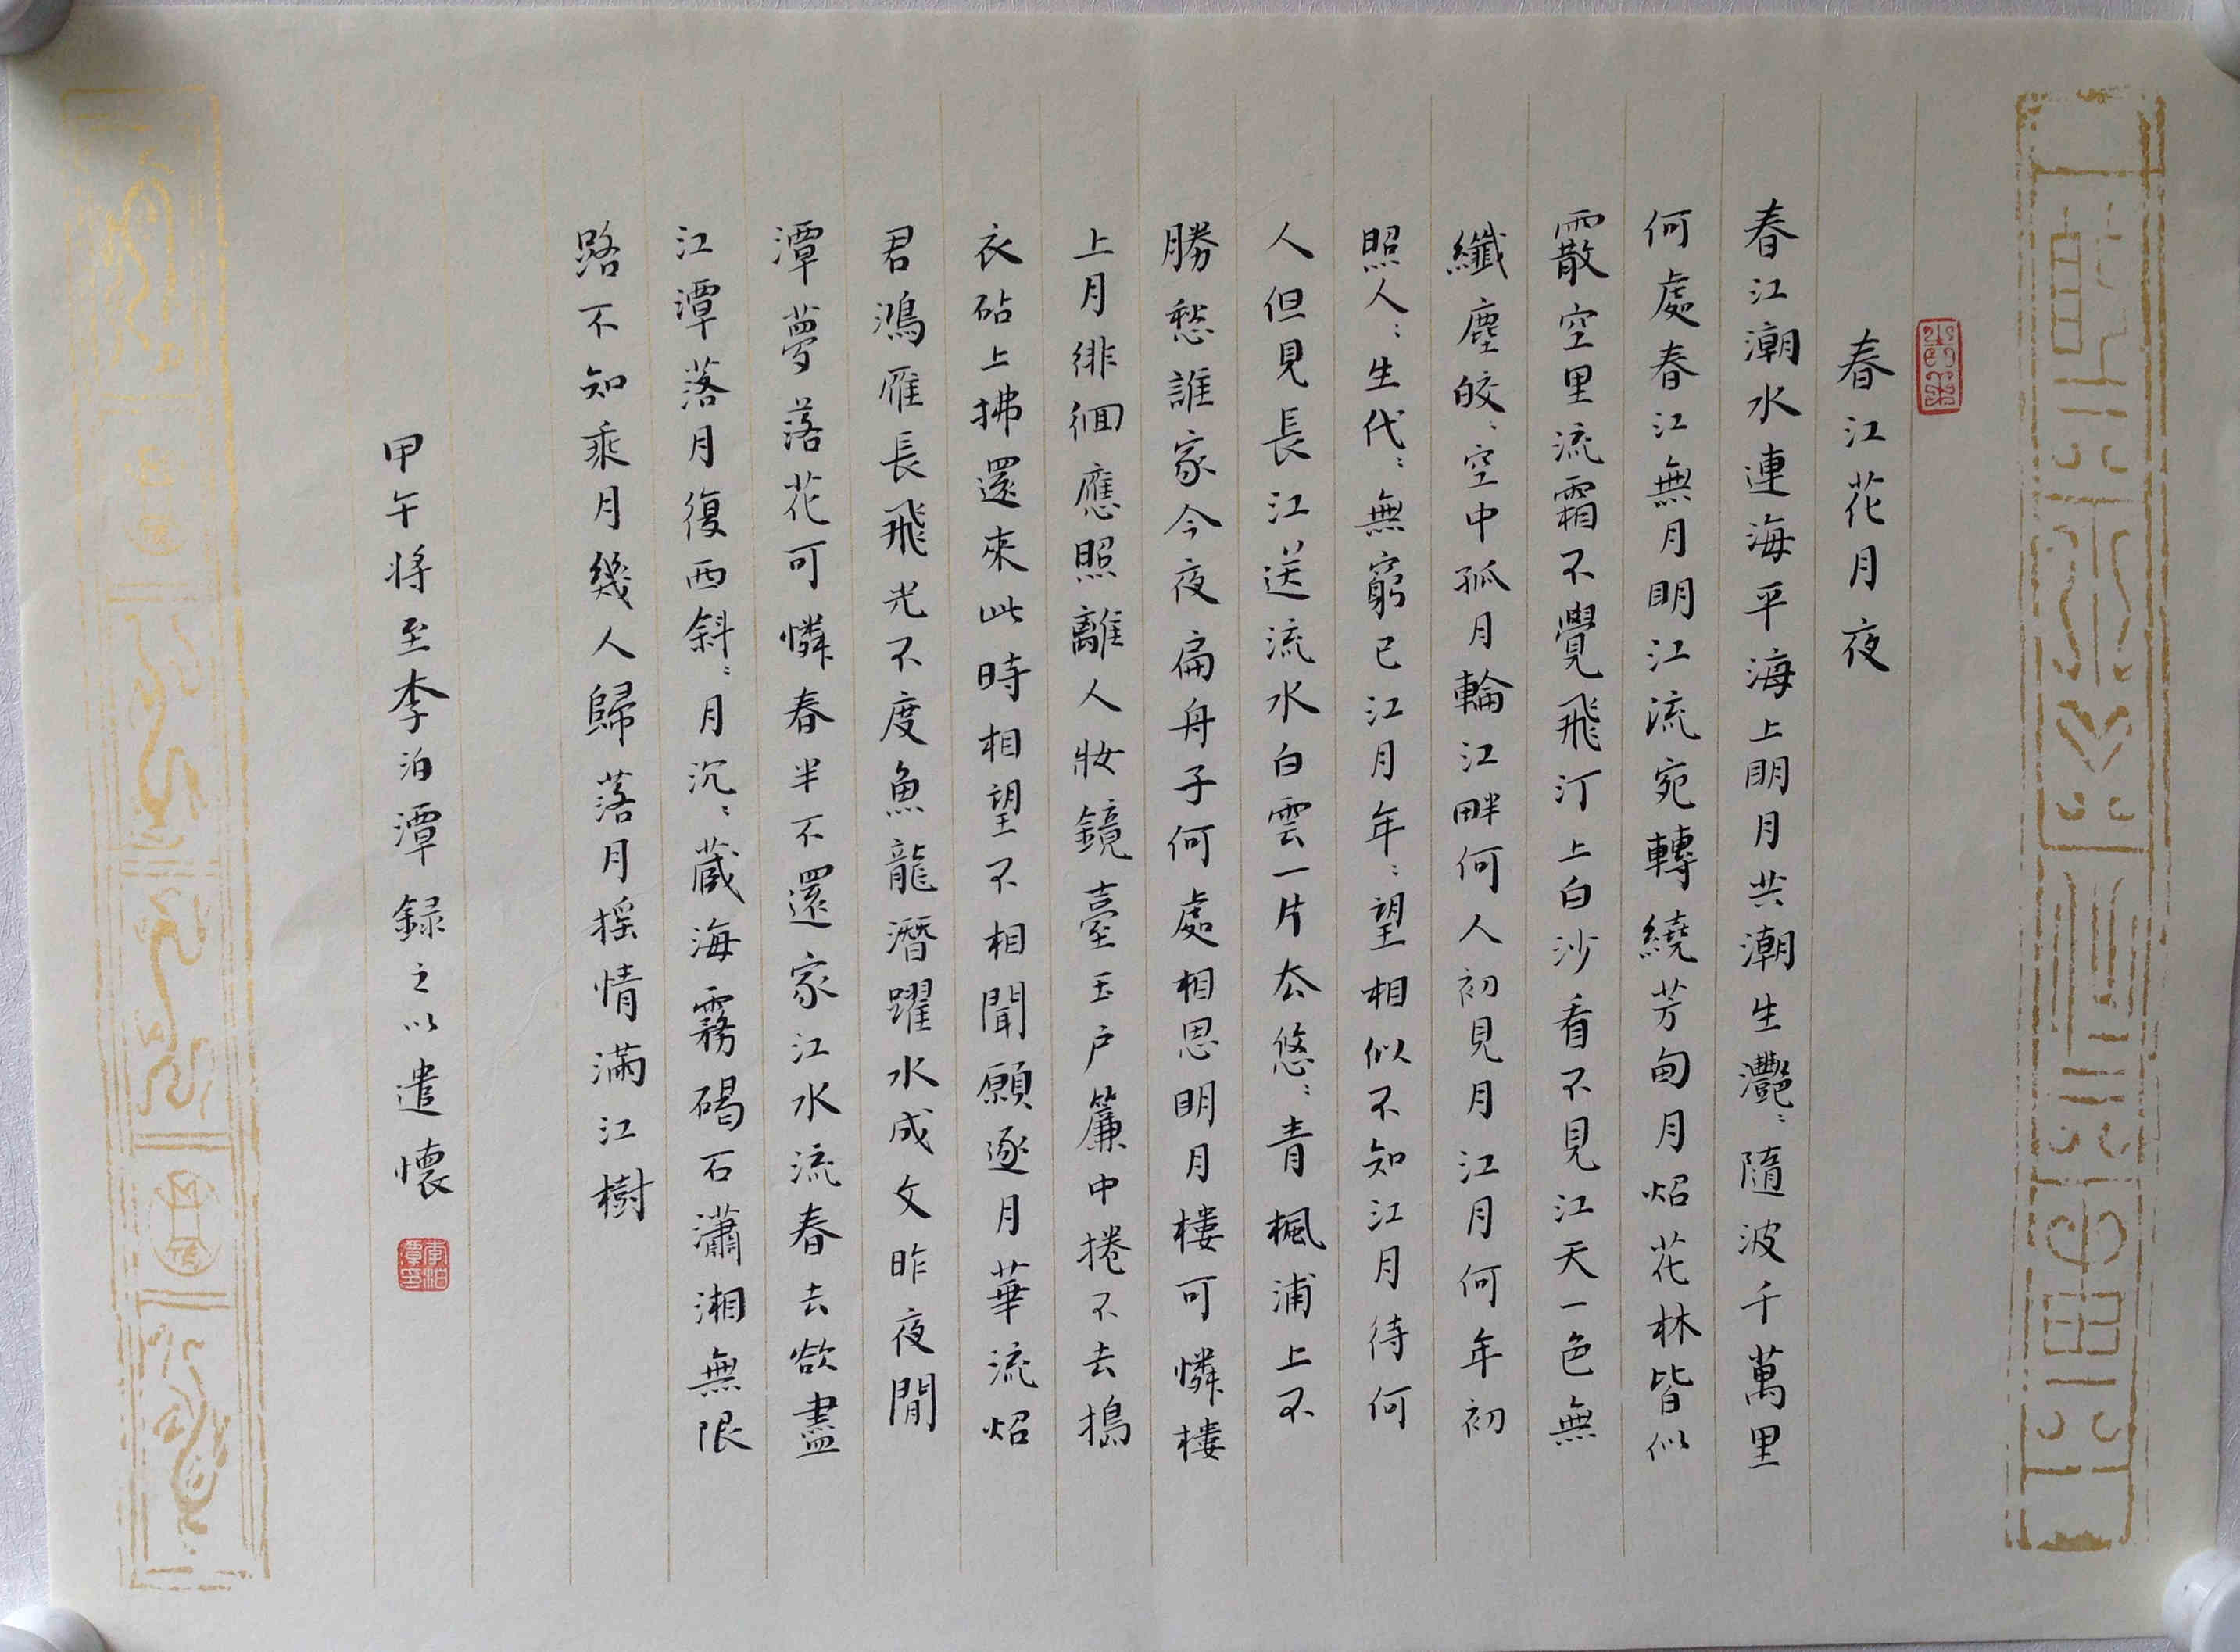 春江花月夜
春江潮水連海平海上明月共潮生灩〻隨波千萬里
何處春江無月明江流宛轉繞芳甸月炤花林皆似
霰空里流霜不覺飛汀上白沙看不見江天一色無
纖塵皎〻空中孤月輪江畔何人初見月江月何年初
照人〻生代〻無窮已江月年〻望相似不知江月待何
人但見長江送流水白雲一片去悠〻青楓浦上不
勝愁誰家今夜扁舟子何處相思明月樓可憐樓
上月徘徊應照離人妝鏡臺玉戶簾中捲不去搗
衣砧上拂還來此時相望不相聞願逐月華流炤
君鴻雁長飛光不度魚龍潛躍水成文昨夜閒
潭夢落花可憐春半不還家江水流春去欲盡
江潭落月復西斜〻月沉〻蔵海霧碣石瀟湘無限
路不知乘月幾人歸落月揺情滿江樹
甲午將至李泊潭録之以遣懷
李泊潭印